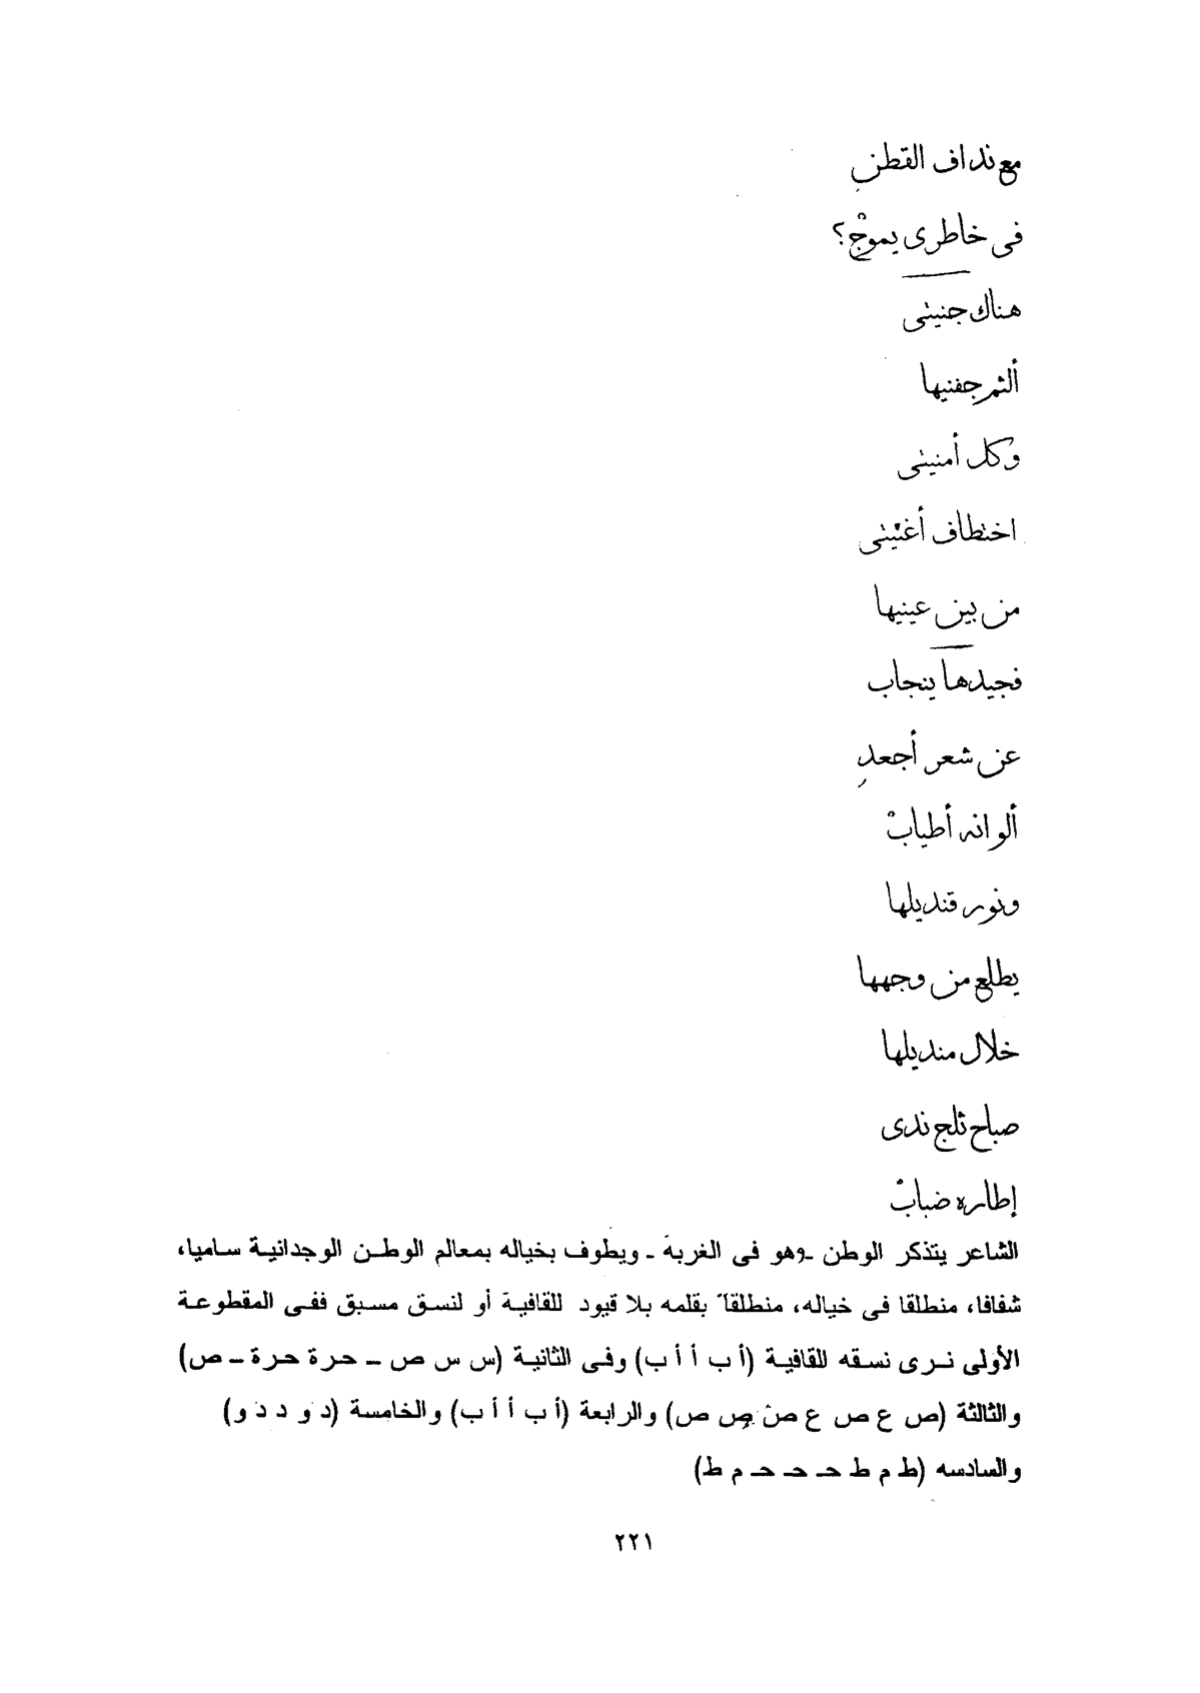 مع نداف القطنِ
فى خاطرى يموجْ؟
هناك جنيتى
ألثم جفنيها
وكل أمنيتى
اختطاف أغنيتى
من بين عينيها
فجيدها ينجاب
عن شعر أجعدِ
ألوانه أطيابْ
ونور قنديلها
يطلع من وجهها
خلال منديلها
صباح ثلج ندى
إطاره ضبابْ
الشاعر يتذكر الوطن ـ وهو فى الغربة ـ ويطوف بخياله بمعالم الوطن الوجدانية ساميا،
شفافا، منطلقا فى خياله، منطلقاً بقلمه بلا قيود للقافية أو لنسق مسبق ففى المقطوعة
الأولى نرى نسقه للقافية (أ ب أ أ ب) وفى الثانية (س س ص ــ حرة حرة ــ ص)
والثالثة (ص ع ص ع ص ص ص) والرابعة (أ ب أ أ ب) والخامسة (د و د د و)
والسادسه (ط م ط حـ حـ حـ م ط)
٢٢١